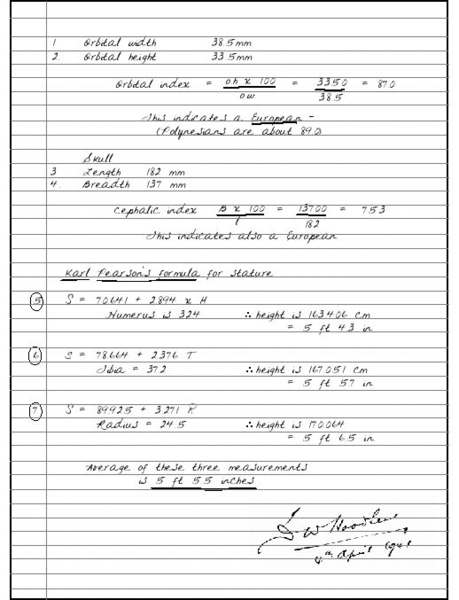 1 Orbital width 38.5mm
2. Orbital height 33.5mm
Orbital index = o.h x 100 = 3350 = 87.0
o.w. 38.5
This indicates a European -
(Polynesians are about 89.0)
Skull
3 Length 182 mm
4. Breadth 137 mm
Cephalic index B x 100 = 13700 = 75.3
l 182
This indicates also a European
Karl Pearson's formula for stature
5 S = 70.641 + 2.894 x H
Humerus is 32.4 ∴ height is 163.406 cm
= 5 ft 4.3 in.
6 S = 78.664 + 2.376 T
Tibia = 37.2 ∴ height is 167.051 cm
= 5 ft 5.7 in.
7 S = 89.925 + 3.271 R
Radius = 24.5 ∴ height is 170.064
= 5 ft 6.5 in
Average of these three measurements
is 5 ft 5.5 inches
4th April 1941